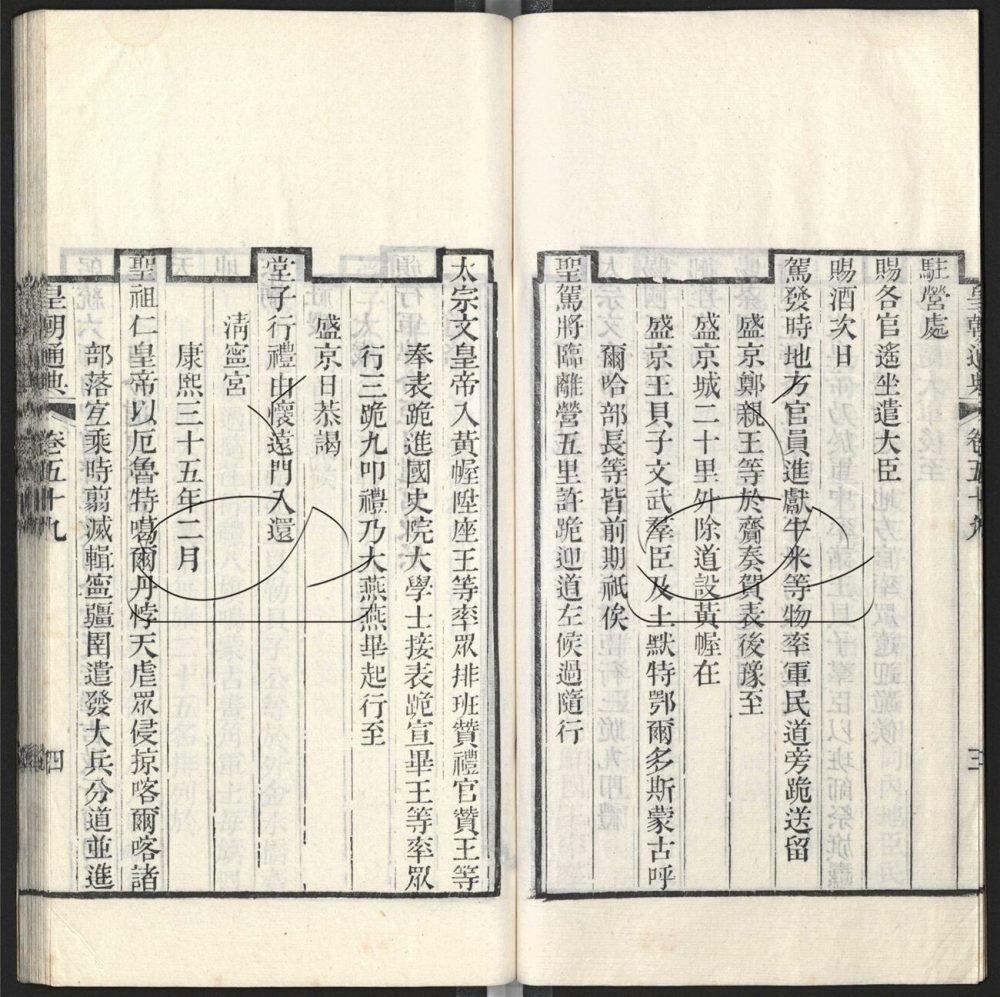 皇朝通典 卷五十九 三
駐營處
賜各官遙坐遣大臣
賜酒次日
駕發時地方官員進獻牛米等物率軍民道旁跪送留
盛京鄭親王等於齎奏賀表後豫至
盛京城二十里外除道設黃幄在
盛京王貝子文武羣臣及土默特鄂爾多斯蒙古呼
爾哈部長等皆前期祇俟
聖駕將臨離營五里許跪迎道左候過隨行
太宗文皇帝入黃幄陞座王等率眾排班贊禮官贊王等
奉表跪進國史院大學士接表跪宣畢王等率眾
行三跪九叩禮乃大燕燕畢起行至
盛京日恭謁
堂子行禮由懷遠門入還
淸寧宮
康熙三十五年二月
聖祖仁皇帝以厄魯特噶爾丹悖天虐眾侵掠喀爾喀諸
部落宜乘時翦滅輯寧疆圉遣發大兵分道並進
皇朝通典 卷五十九 四